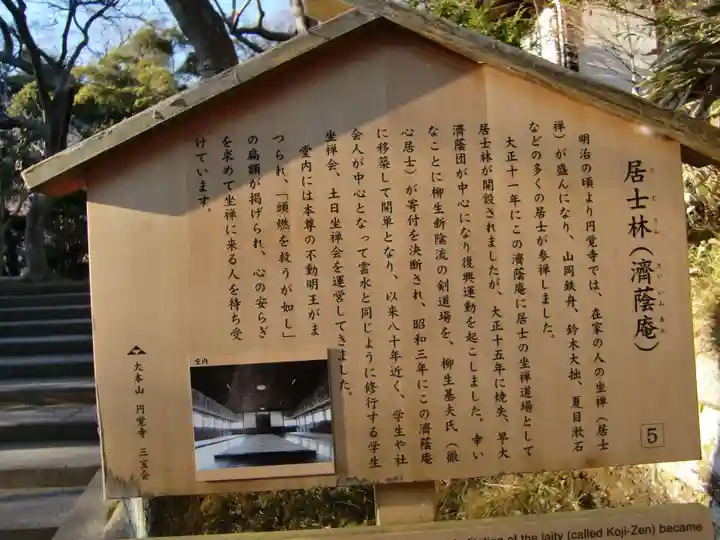 居士林（濟蔭庵）
こじりん
さいいんあん
明治の頃より円覚寺では、在家の人の坐禅（居士
禅）が盛んになり、山岡鉄舟、鈴木大拙、夏目漱石
などの多くの居士が参禅しました。
大正十一年にこの濟蔭庵に居士の坐禅道場として
居士林が開設されましたが、大正十五年に焼失、早大
濟蔭団が中心になり復興運動を起こしました。幸い
なことに柳生新陰流の剣道場を、柳生基夫氏（徹
心居士）が寄付を決断され、昭和三年にこの濟蔭庵
に移築して開単となり、以来八十年近く、学生や社
会人が中心となって雲水と同じように修行する学生
坐禅会、土日坐禅会を運営してきました。
堂内には本尊の不動明王がま
つられ、「頭燃を救うが如し」
の扁額が掲げられ、心の安らぎ
を求めて坐禅に来る人を待ち受
けています。
大本山 円覚寺 三宝会
堂内
5
of the laity (called Koji-Zen) became